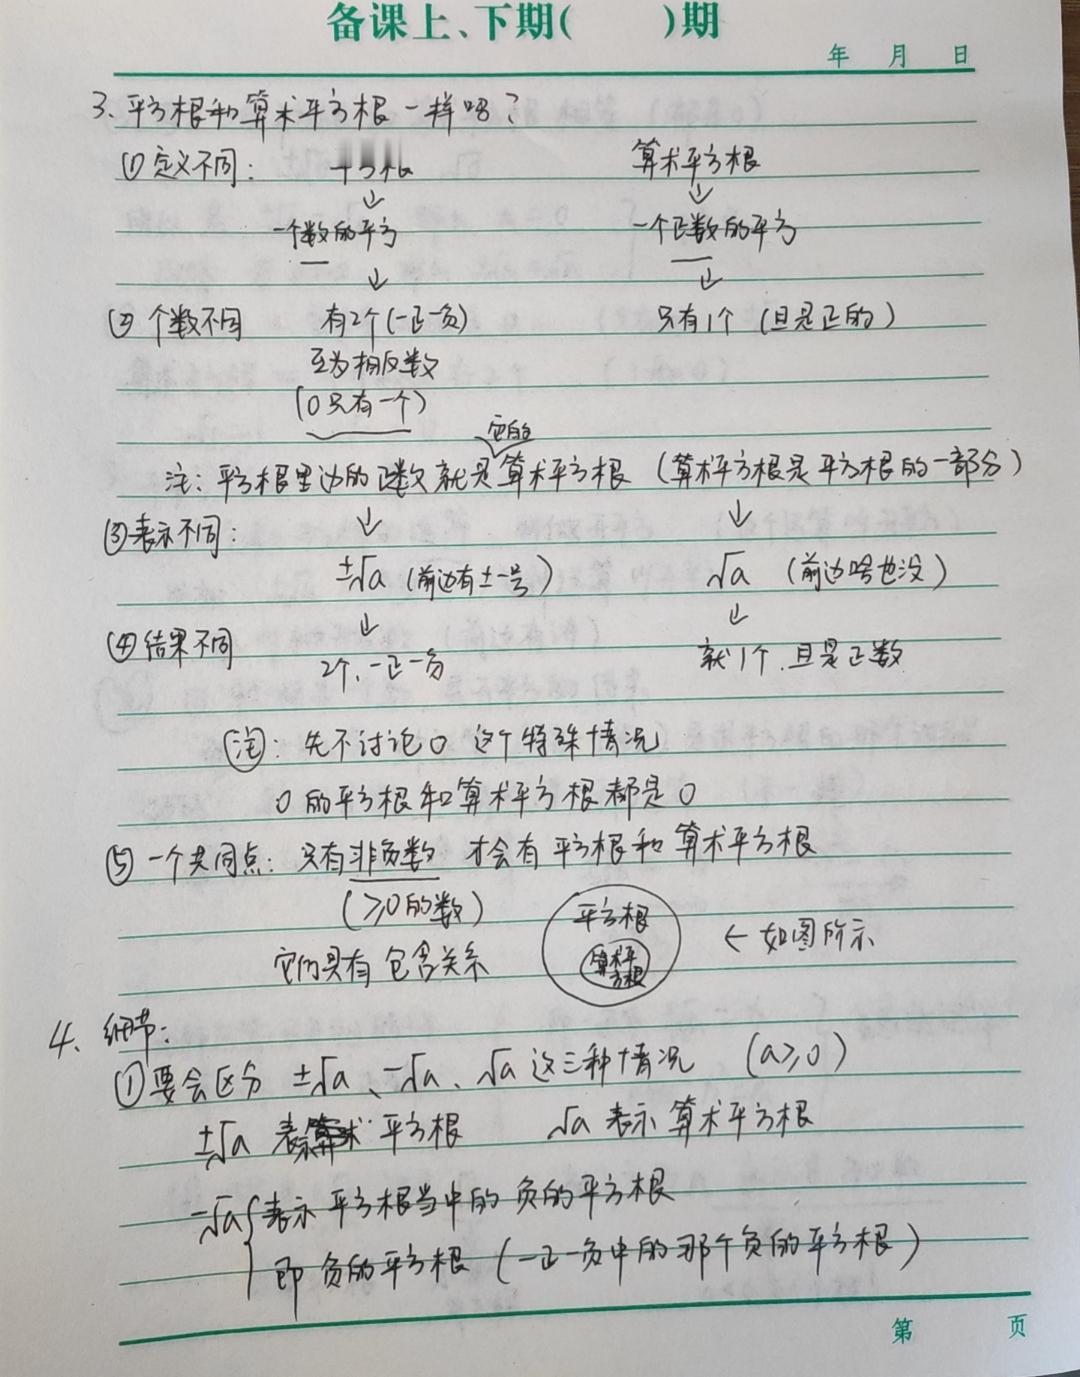 备课上、下期(　　)期
年　月　日
3、平方根和算术平方根一样吗?
①定义不同:　平方根　算术平方根
↓　↓
一个数的平方　一个正数的平方
↓　↓
②个数不同　有2个(一正一负)　只有1个(且是正的)
互为相反数
(0只有一个)
它的
注:平方根里边的正数就是算术平方根(算术平方根是平方根的一部分)
↓　↓
③表示不同:
±√a(前边有±号)　√a(前边啥也没)
↓　↓
④结果不同　2个、一正一负　就1个.且是正数
注:先不讨论0这个特殊情况
0的平方根和算术平方根都是0
⑤一个共同点:只有非负数才会有平方根和算术平方根
(≥0的数)
平方根　←如图所示
它们具有包含关系　算术平方根
4、细节:
①要会区分±√a、-√a、√a这三种情况　(a≥0)
±√a表示平方根　√a表示算术平方根
-√a{表示平方根当中的负的平方根
即负的平方根(一正一负中的那个负的平方根)
第　页